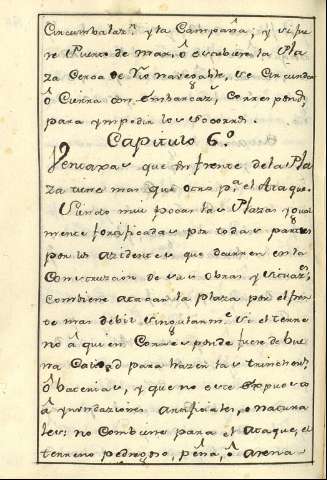 Circumbalaz.n y la Campaña; y si fue
re Puerto de mar, ô estubiere la Pla
za Cerca de Rio navegable, se Circunda
ô Cierra con Embarcaz.s Correspond.s
para ympedir los socorros.
Capitulo 6.º
Ventaxas que en frente de la Pla
za tiene mas que otro p.a el Ataque.
Siendo mui pocas las Plazas ygual
mente fortificadas por todas partes
por los azidentes que ocurren en la
Construczion de sus Obras y situaz.n
Combiene atacar la plaza por el fren
te mas debil singularm.e si el terre
no â quien Corresponde fuere de bue
na Calidad para hazer las trincheras,
ô baterias, y que no este Expuesto
â ynundaziones artifiziales, o natura
les: no Combiene para el Ataque, el
terreno pedregoso, peña, ô arena